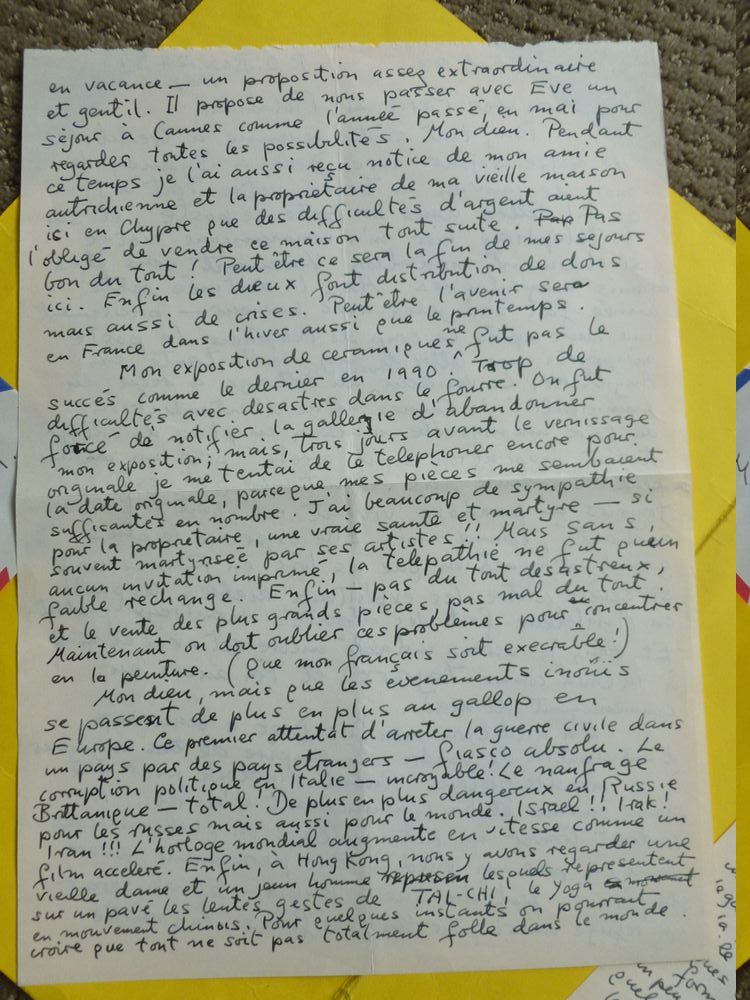 en vacance — un proposition assez extraordinaire
et gentil. Il propose de nous passer avec Eve un
séjour à Cannes comme l'anneé passé, en mai pour
regarder toutes les possibilités. Mon dieu. Pendant
ce temps je l'ai aussi reçu notice de mon amie
autrichienne et la propriétaire de ma vieille maison
ici en Chypre que des difficultés d'argent aient
l'obligé de vendre ce maison tout suite. Pap Pas
bon du tout! Peut être ce sera la fin de mes sejours
ici. Enfin les dieux font distribution de dons
mais aussi de crises. Peut être l'avenir sera
en France dans l'hiver aussi que le printemps.
Mon exposition de ceramiques ne fut pas le
succés comme le dernier en 1990. Trop de
difficultés avec desastres dans le fourre. On fut
forcé de notifier la gallerie d'abandonner
mon exposition; mais, trois jours avant le vernissage
originale je me tentai de te telephoner encore pour
la date originale, parceque mes pièces me sembaient
suffisantes en nombre. J'ai beaucoup de sympathie
pour la propriétaire, une vraie sainte et martyre — si
souvent martyriseé par ses artistes!! Mais sans,
aucun invitation imprimé, la telepathie ne fut qu'un
faible rechange. Enfin — pas du tout desastreux,
et le vente des plus grands pièces, pas mal du tout.
Maintenant on doit oublier ces problèmes pour se concentrer
en la peinture. (Que mon français soit execrable!)
Mon dieu, mais que les evenements inoüis
se passent de plus en plus au gallop en
Europe. Ce premier attentat d'arreter la guerre civile dans
un pays par des pays etrangers — fiasco absolu. Le
corruption politique en Italie — incroyable! Le naufrage
Brittanique — total! De plus en plus dangereux en Russie
pour les russes mais aussi pour le monde. Israel!! Irak!
Iran!!! L'horloge mondial augmente en vitesse comme un
film acceleré. Enfin, à Hong Kong, nous y avons regarder une
vieille dame et un jeun homme represen lesquels representent
sur un pavé les lentes gestes de TAL-CHI, le Yoga
en mouvement chinois. Pour quelques instants on pourrait
croire que tout ne soit pas totalment folle dans le monde.